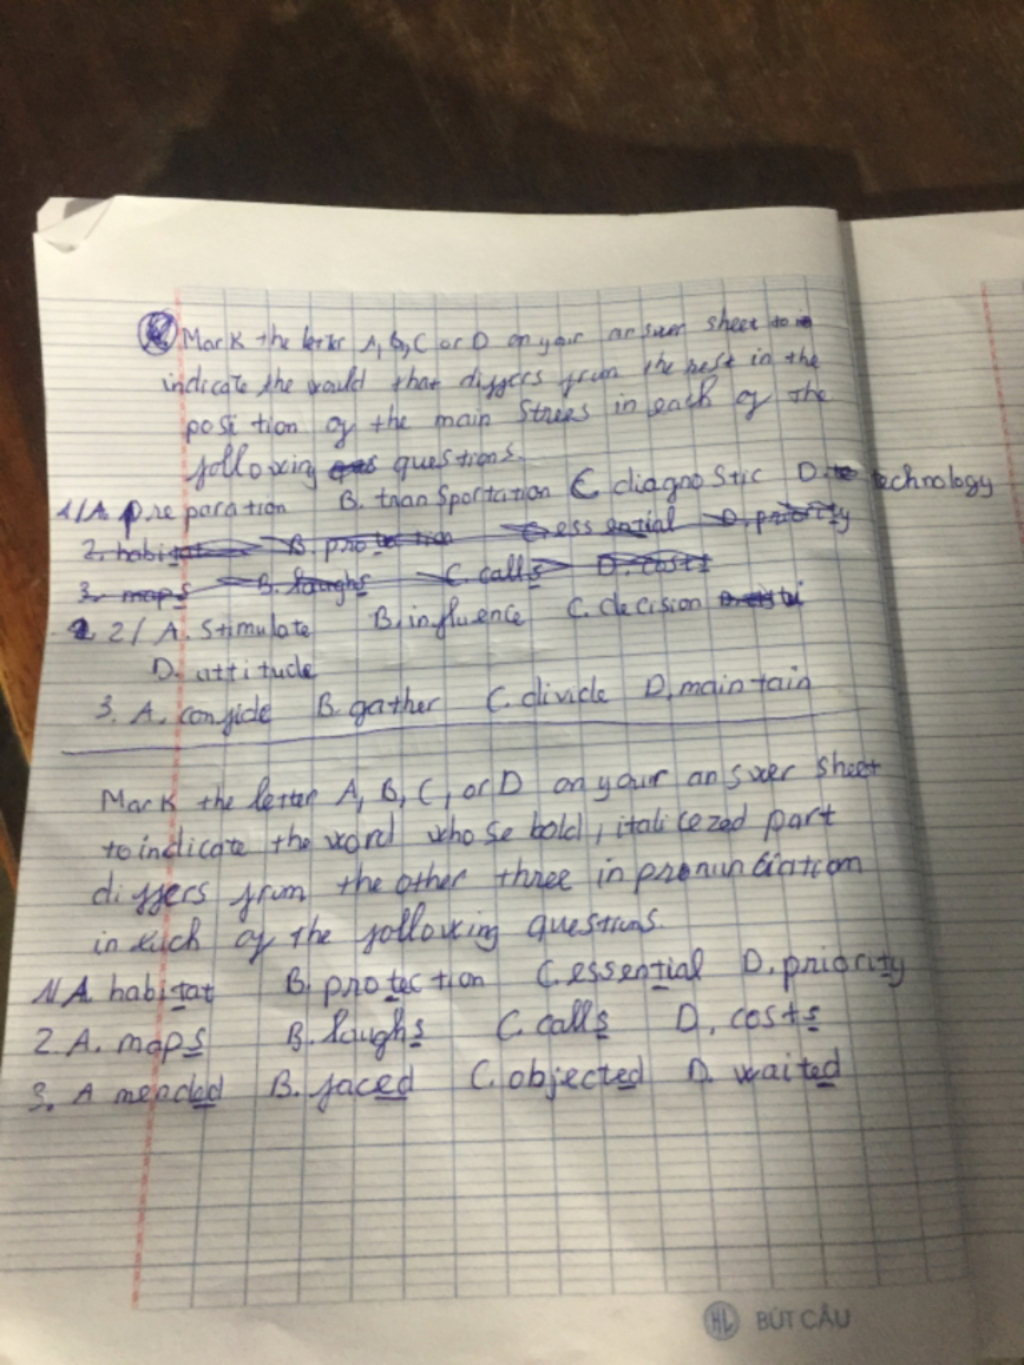 Mark the letter A, B, C or D on your answer sheet to
indicate the would that differs from the rest in the
position of the main Strees in each of the
following questions.
1/A. preparation B. transportation C diagnostic D. technology
2. habitat B. protection C. essential D. priority
3. maps B. laughs C. calls D. costs
2/ A. Stimulate B. influence C. decision
D. attitude
3. A. confide B. gather C. divide D. maintain
Mark the letter A, B, C, or D on your answer sheet
to indicate the word whose bold, italicezed part
differs from the other three in pronunciation
in each of the following questions.
1/ A habitat B. protection C. essential D. priority
2. A. maps B. laughs C. calls D. costs
3. A mended B. faced C. objected D. waited
HL BÚT CÂU